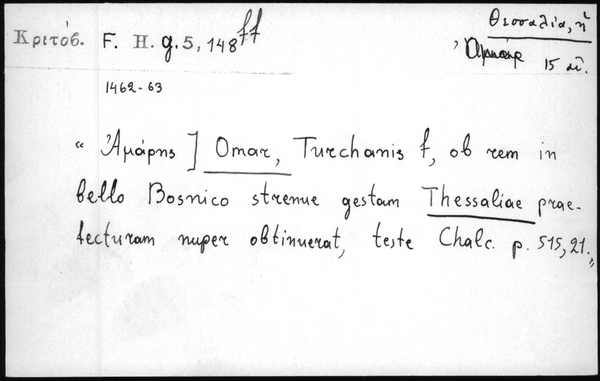 Κριτόβ. F. H. g. 5, 148 ff
Θεσσαλία, ἡ
15 αἰ.
1462-63
" Ἀμάρης ] Omar, Turchanis f, ob rem in
bello Bosnico strenue gestam Thessaliae prae-
fecturam nuper obtinuerat, teste Chalc. p. 515, 21."